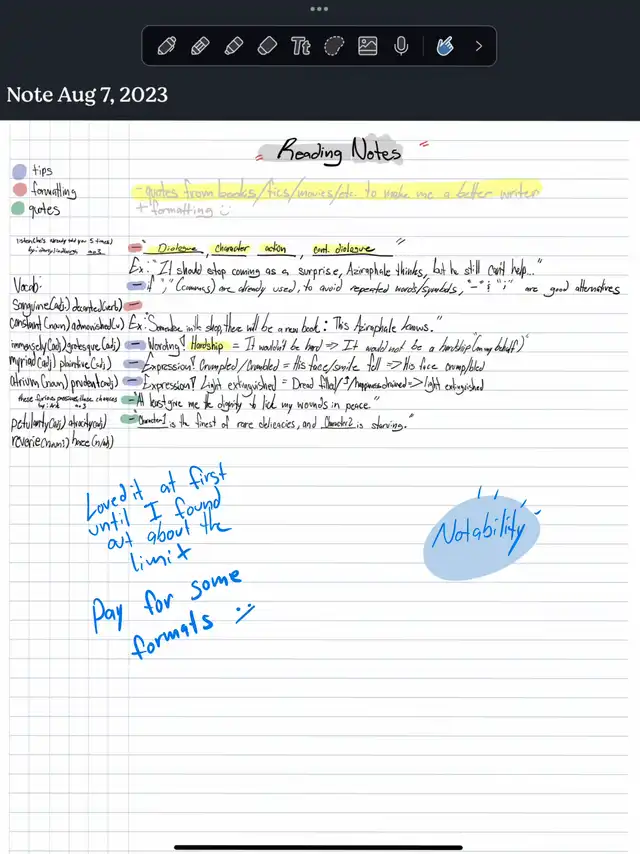 Note Aug 7, 2023
Reading Notes
tips
formatting
quotes
- quotes from books/fics/movies/etc. to make me a better writer
+ formatting :)
- "Dialogue, character action, cont. dialogue"
Ex: "It should stop coming as a surprise, Aziraphale thinks, but he still can't help..."
- if "," (commas) are already used, to avoid repeated words/symbols, "-" & ";" are good alternatives
Vocab:
sanguine(adj) decanted(verb)
constant(noun) admonished(v)
Ex: "Somewhere in the shop, there will be a new book: This Aziraphale knows."
immensely(adj) grotesque(adj)
- Wording! Hardship = It wouldn't be hard => It would not be a hardship "(on my behalf)"
myriad(adj) plaintive(adj)
- Expression! Crumpled/Crumbled = His face/smile fell => His face crumpled
atrium(noun) prudent(adj)
- Expression! Light extinguished = Dread filled/ /happiness drained => light extinguished
these furies possess, these chances
- "At least give me the dignity to lick my wounds in peace."
petulantly(adj) atrocity(adj)
- "Character 1 is the finest of rare delicacies, and Character 2 is starving."
reverie(noun) haze(n/adj)
Loved it at first
until I found
out about the
limit
Pay for some
formats
Notability